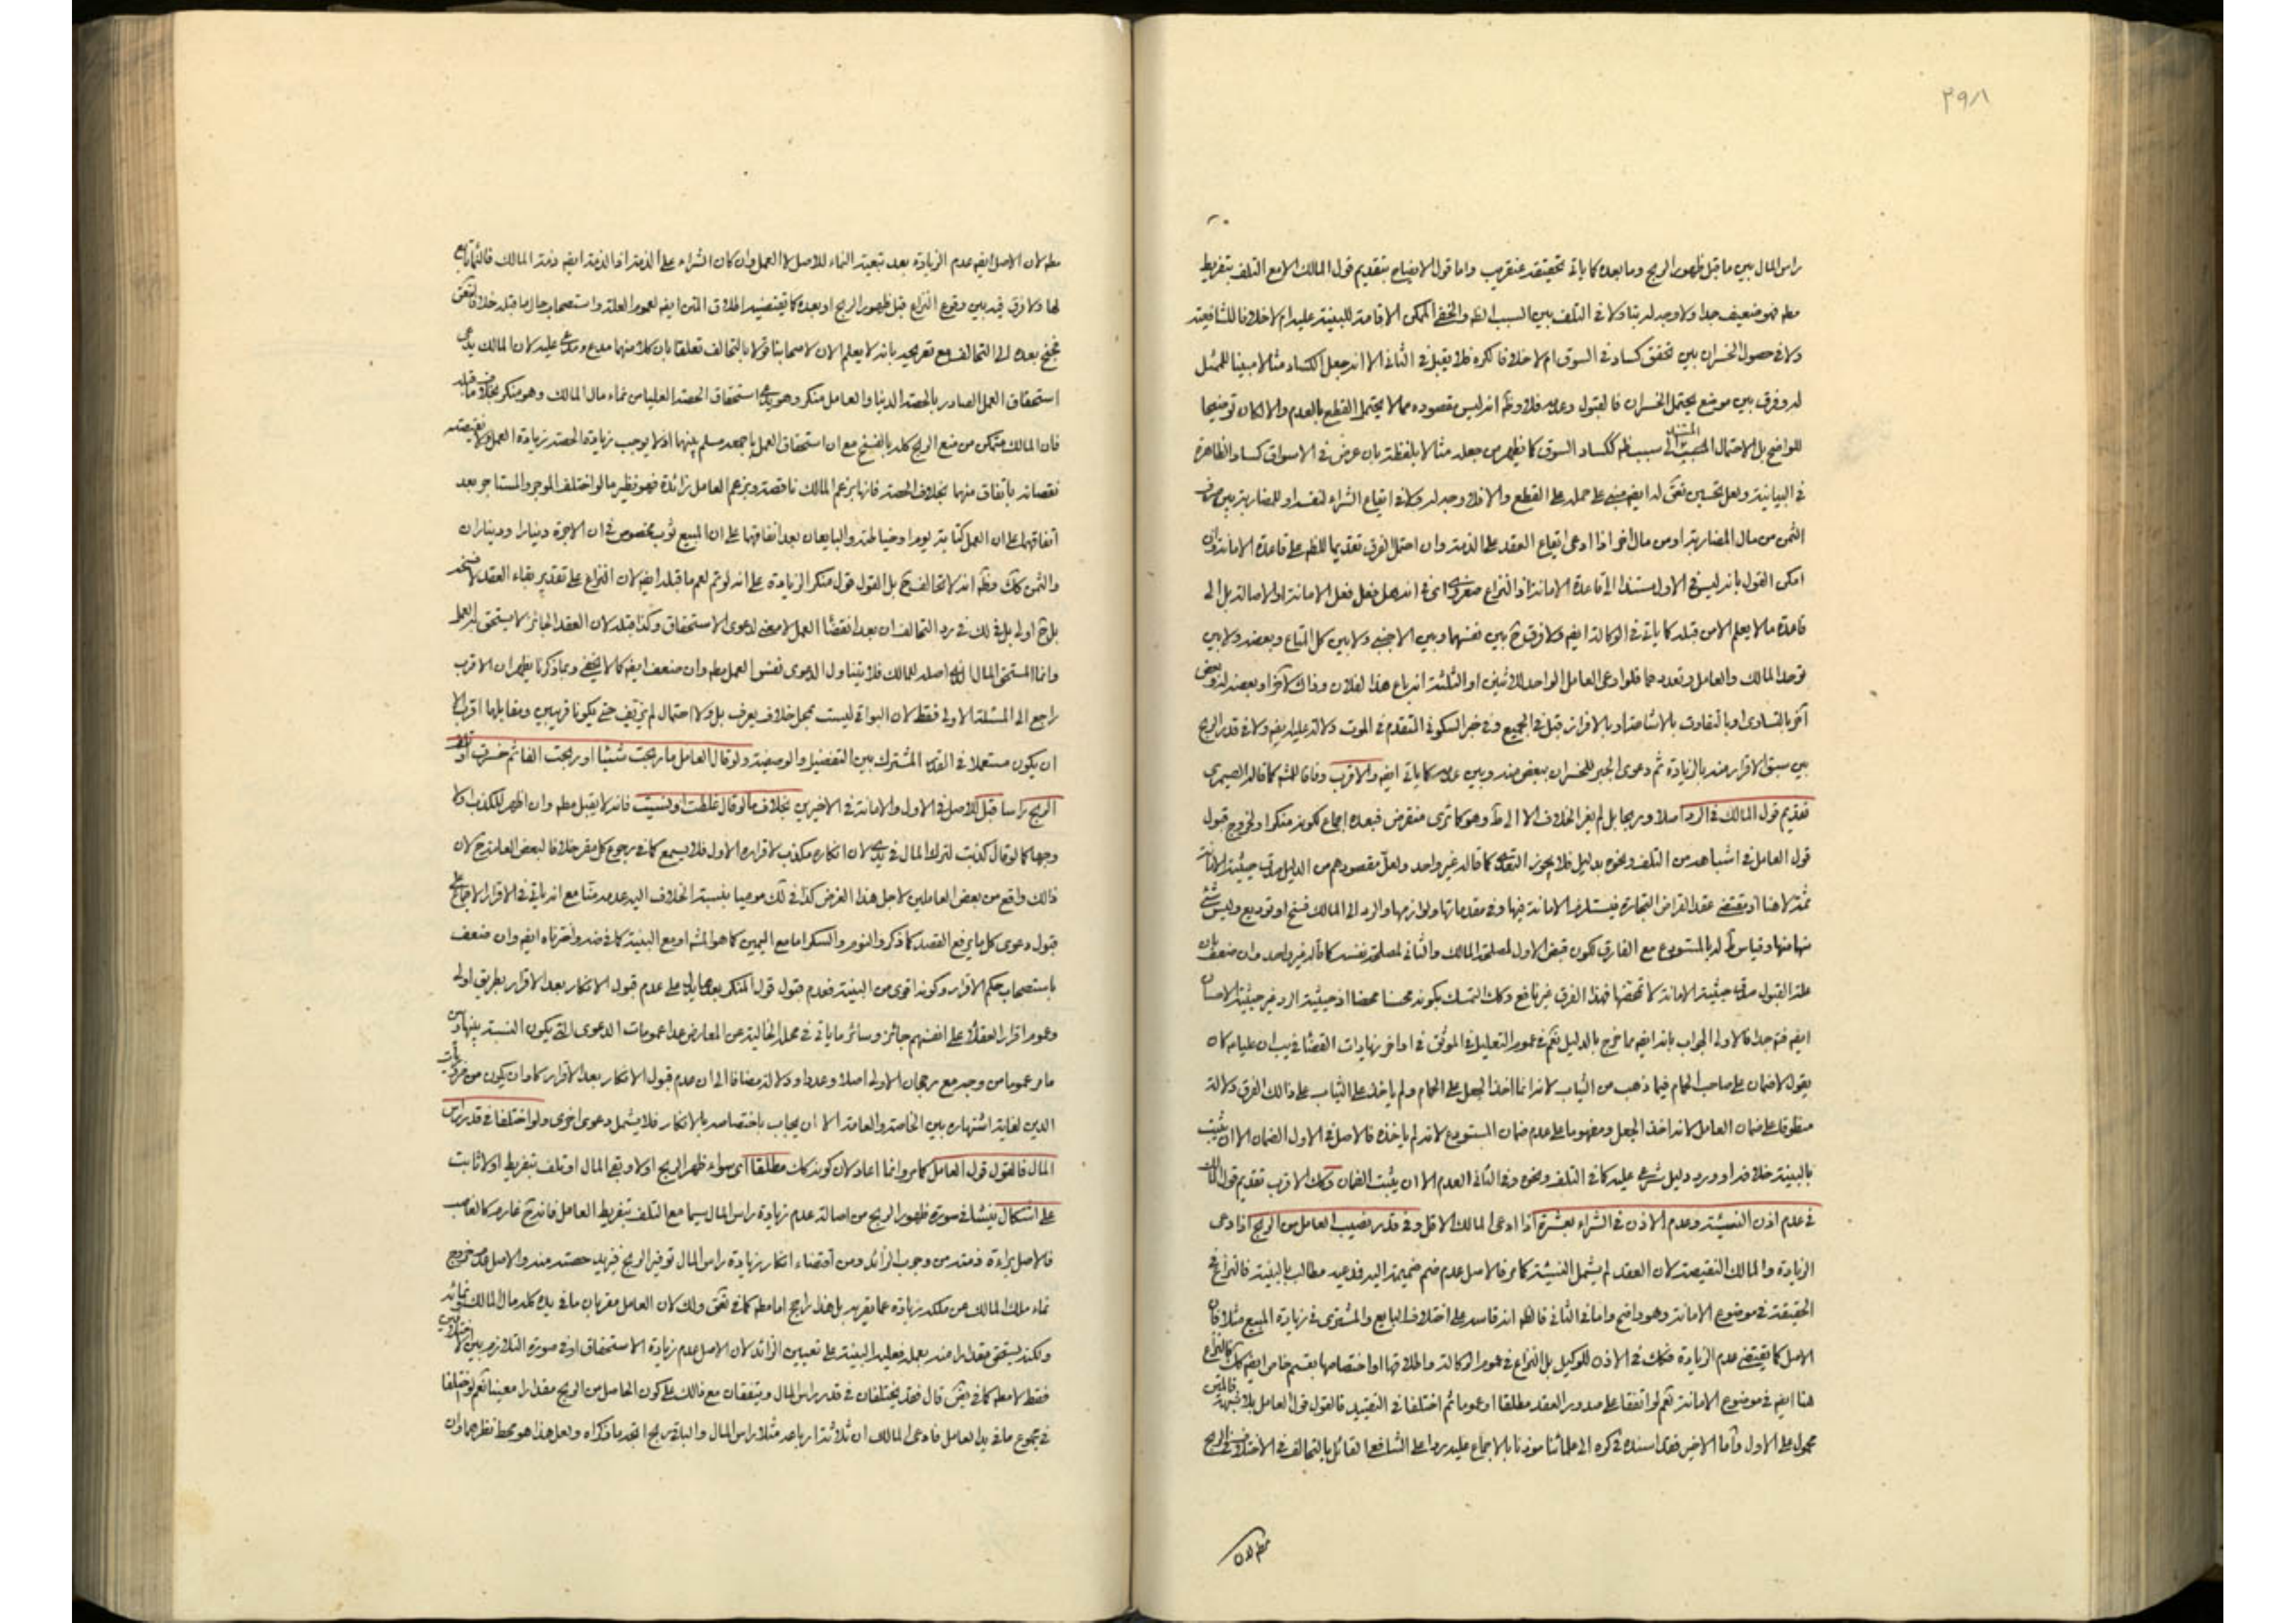 ٣٩٨
راس المال بين ما قبل ظهور الربح وما بعده كما ياتي تحقيقه عنقريب واما قول الايضاح بتقديم قول المالك الا مع التلف بتفريط
مطه فهو ضعيف جدا ولا وجه له بتا ولا في التلف بين السبب الظه والخفي الممكن الاقامة للبينة عليه ام لا خلافا للشافعية
ولا في حصول الخسران بين تحقق كساد في السوق ام لا خلافا لكره فلا يقبل في الثاني الا انه جعل الكساد مثالا مبينا للممثل
له وفرق بين موضع يحتمل الخسران فالقبول وعدمه فلا وظه انه ليس مقصوده مما لا يحتمل القطع بالعدم والا لكان توضيحا
للواضح بل الاحتمال المستند الى سبب ظه ككساد السوق كما يظهر من جعله مثالا بلفظة بان عرض في الاسواق كساد الظاهرة
في البيانية ولعل تحسين له ايضه مبني على حمله على القطع والا فلا وجه له ولا في ايقاع الشراء لنفسه او للمضاربة بين
الثمن من مال المضاربة او من مال اخر اذا ادعى ايقاع العقد على الذمة وان احتمل الفرق تقديما للظه على قاعدة الامانة وان
امكن القول بانه ليس في الاول مستندا الى قاعدة الامانة اذ النزاع في انه هل فعل فعل الامانة او الاصالة بل الى
قاعدة ما لا يعلم الا من قبله كما ياتي في الوكالة ايضه ولا فرق ح بين نفسهما وبين الاجنبي ولا بين كل المتاع وبعضه ولا بين
توحد المالك والعامل وتعددهما فلو ادعى العامل الواحد للاثنين او الثلثة انه باع هذا لفلان وذاك لآخر او بعضه لزيد وبعض
آخر بالتساوي او بالتفاوت بالاشاعة او بالافراز قبل في الجميع وفي خبر السكوني المتقدم في الموت دلالة عليه ايضه ولا في قدر الربح
بين سبق الاقرار منه بالزيادة ثم دعوى الجبر للخسران ببعض منه وبين عدمه كما ياتي ايضه والاقرب وفاقا للمشه كما قاله الصيمري
تقديم قول المالك في الرد اصلا وربحا بل لم يعز الخلاف الا الى ط وهو كما ترى منقرض فبعده اجماع لكونه منكرا ولخروج قبول
قول العامل في اشباهه من التلف ونحوه بدليل فلا يجوز التعدي كما قاله غير واحد ولعل مقصودهم من الدليل حيثية الامانة
ثمة لا هنا اذ مقتضى عقد القراض التجارة فيستلزم الامانة فيها وفي مقدماتها ولوازمها والرد الى المالك فسخ او توديع وليس شئ
منها منها وقياس ط له بالمستودع مع الفارق لكون قبض الاول لمصلحة المالك والثاني لمصلحة نفسه كما قاله غير واحد وان ضعف بان
علة القبول حيثية الامانة لا تمحضها فهذا الفرق غير نافع وكك التمسك بكونه محسنا محضا اذ حيثية الرد غير حيثية الاحسان
ايضه فتم جدا فالاولى الجواب بانه ايضه مما خرج بالدليل نعم في عموم التعليل في الموثق في اواخر نهايات القضا في يب ان عليا عه كان
يقول لا ضمان على صاحب الحمام فيما ذهب من الثياب لانه انما اخذ الجعل على الحمام ولم ياخذ على الثياب على ذالك الفرق دلالة
منطوقة على ضمان العامل لانه اخذ الجعل ومفهوما على عدم ضمان المستودع لانه لم ياخذه فالاصل في الاول الضمان الا ان يثبت
بالبينة خلافه او ورد دليل شرعي عليه كما في التلف ونحوه وفي الثاني العدم الا ان يثبت الضمان وكك الاقرب تقديم قول المالك
في عدم اذن النسيئة وعدم الاذن في الشراء بعشرة اذا ادعى المالك الاقل وفي قدر نصيب العامل من الربح اذا ادعى
الزيادة والمالك النقيصة لان العقد لم يشمل النسيئة كما مر فالاصل عدم ضم ضميمة اليه فمدعيه مطالب بالبينة فالنزاع في
الحقيقة في موضوع الامانة وهو واضح واما في الثاني فالظه انه قاسه على اختلاف البايع والمشتري في زيادة المبيع مثلا فان
الاصل كما يقتضي عدم الزيادة فكك في الاذن للوكيل بل النزاع في عموم الوكالة واطلاقها او اختصاصها بقسم خاص ايضه كك فالنزاع
هنا ايضه في موضوع الامانة نعم لو اتفقا على صدور العقد مطلقا او عموما ثم اختلفا في التقييد فالقول قول العامل بلا شبهة فالمتن
محمول على الاول واما الاخير فقد اسنده في كره الى علمائنا موذنا بالاجماع عليه ردا على الشافعي القائل بالتحالف في الاختلاف في الربح
مطه لان
مطه لان الاصل ايضه عدم الزيادة بعد تبعية النماء للاصل لا العمل وان كان الشراء على الذمة اذ الذمة ايضه ذمة المالك فالنماء تابع
لها ولا فرق فيه بين وقوع النزاع قبل ظهور الربح او بعده كما يقتضيه اطلاق المتن ايضه لعموم العلة واستصحاب حال ما قبله خلافا
بعده الى التحالف مع تصريحه بانه لا يعلم الان لاصحابنا قولا بالتحالف تعلقا بان كلا منهما مدع ومدعى عليه لان المالك يدعي
استحقاق العمل الصادر بالحصة الدنيا والعامل منكر وهو يدعي استحقاق الحصة العليا من نماء مال المالك وهو منكر بخلاف ما قبله
فان المالك متمكن من منع الربح كله بالفسخ مع ان استحقاق العمل باجمعه مسلم بينهما اذ لا يوجب زيادة الحصة زيادة العمل ولا نقيصته
نقصانه باتفاق منهما بخلاف الحصة فانها بزعم المالك ناقصة وبزعم العامل زائدة فهو نظير ما لو اختلف الموجر والمستاجر بعد
اتفاقهما على ان العمل كتابة يوم او خياطة والبايعان بعد اتفاقهما على ان المبيع ثوب مخصوص في ان الاجرة دينار او ديناران
والثمن كك وظه انه لا تحالف ح بل القول قول منكر الزيادة على انه لو تم لعم ما قبله ايضه لان النزاع على تقدير بقاء العقد لا فسخه
بل ح اولى بل في لك في رد التحالف ان بعد انقضاء العمل لا معنى لدعوى الاستحقاق وكذا قبله لان العقد الجائز لا يستحق به العمل
وانما المستحق المال الذي اصله للمالك فلا يتناول الدعوى نفس العمل مطه وان ضعف ايضه كما لا يخفى وبما ذكرنا يظهر ان الاقرب
راجع الى المسئلة الاولى فقط لان البواقي ليست محل خلاف يعرف بل ولا احتمال لم يزيف حتى يكونا قريبين ومقابلهما اقرب الا
ان يكون مستعملا في القدر المشترك بين التفضيل والوصفية ولو قال العامل ما ربحت شيئا او ربحت الفا ثم خسرت او تلف
الربح راسا قبل للاصل في الاول والامانة في الاخيرين بخلاف ما لو قال غلطت او نسيت فانه لا يقبل مطه وان اظهر للكذب
وجها كما لو قال كذبت لترك المال في يدي لان انكاره مكذب لاقراره الاول فلا يسمع كما في رجوع كل مقر خلافا لبعض العامة ح لان
ذالك واقع من بعض العاملين لاجل هذا الغرض كذا في لك موميا بنسبة الخلاف اليه عدمه منا مع انه ياتي في الاقرار
قبول دعوى كل ما يرفع القصد كما ذكر والنوم والسكر اما مع اليمين كما هو المشه او مع البينة كما في ضه وآخرناه ايضه وان ضعف
باستصحاب حكم الاقرار وكونه اقوى من البينة فعدم قبول قول المنكر بعدها يدل على عدم قبول الانكار بعد الاقرار بطريق اولى
وعموم اقرار العقلاء على انفسهم جائز وسائر ما ياتي في محله الخالية عن المعارض عدا عمومات الدعوى التي يكون النسبة بينها وبين
ما مر عموما من وجه مع رجحان الاولى اصلا وعددا ودلالة مضافا الى ان عدم قبول الانكار بعد الاقرار كاد ان يكون من ضروريات
الدين لغاية اشتهاره بين الخاصة والعامة الا ان يجاب باختصاصه بالانكار فلا يشمل دعوى اخرى ولو اختلفا في قدر راس
المال فالقول قول العامل كما مر وانما اعاد لان كونه كك مطلقا اى سواء ظهر الربح او لا وبقي المال او تلف بتفريط او لا ثابت
على اشكال ينشا في صورة ظهور الربح من اصالة عدم زيادة راس المال سيما مع التلف بتفريط العامل فانه ح غارم كالغاصب
فالاصل براءة ذمته من وجوب الزائد ومن اقتضاء انكار زيادة راس المال توفير الربح فيزيد حصته منه والاصل عدم خروج
نماء ملك المالك عن ملكه زيادة عما يقر به بل هذا راجح اما مطه كما في ولك لان العامل مقر بان ما في يده كله مال المالك
ولكنه يستحق مقدارا منه بعمله فعليه البينة على تعيين الزائد لان الاصل عدم زيادة الاستحقاق او في صورة التلازم بين
فقط لا مطه كما في قال فقد يختلفان في قدر راس المال ويتفقان مع ذالك على كون الحاصل من الربح مقدارا معينا نعم لو اختلفا
في مجموع ما في يد العامل فادعى المالك ان ثلاثة ارباعه مثلا راس المال والباقي ربح اتجه ما ذكراه ولعل هذا هو محط نظرهما وان